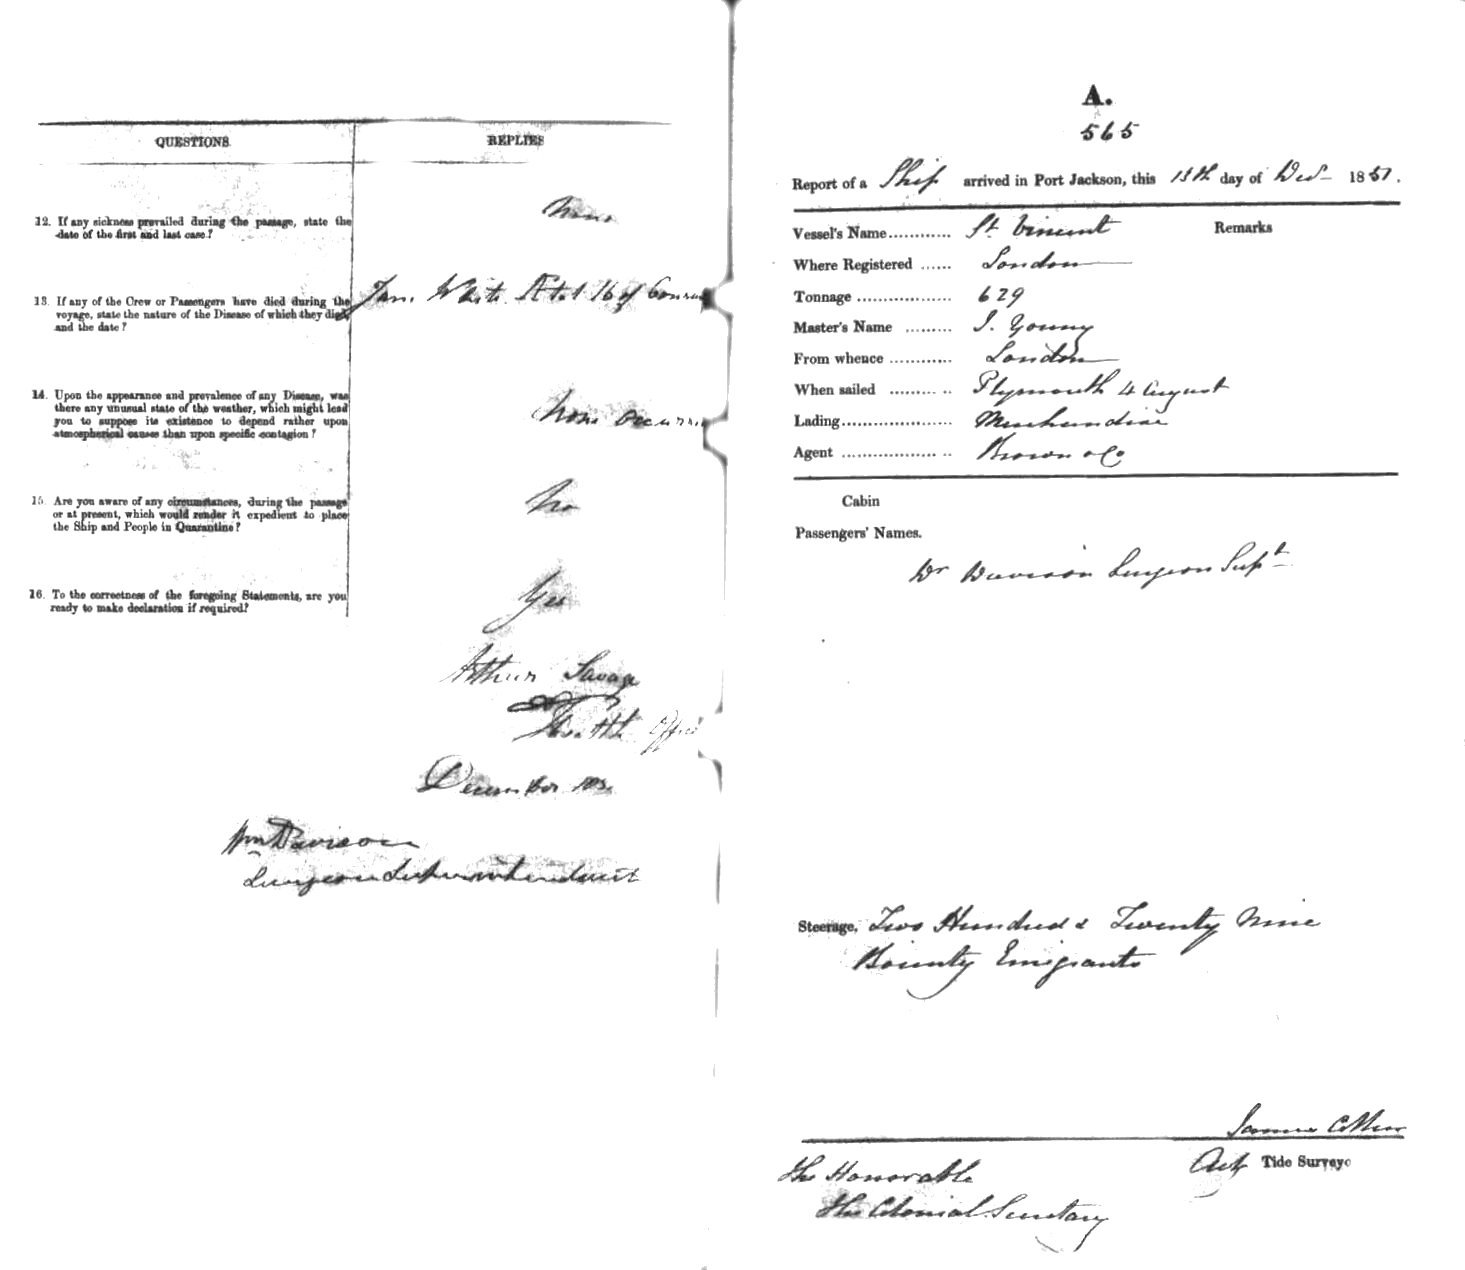 QUESTIONS.
REPLIES
12. If any sickness prevailed during the passage, state the
date of the first and last case?
None
13. If any of the Crew or Passengers have died during the
voyage, state the nature of the Disease of which they died
and the date?
Jane White Ætat 16 of
14. Upon the appearance and prevalence of any Disease, was
there any unusual state of the weather, which might lead
you to suppose its existence to depend rather upon
atmospherical causes than upon specific contagion?
None
15. Are you aware of any circumstances, during the passage
or at present, which would render it expedient to place
the Ship and People in Quarantine?
No
16. To the correctness of the foregoing Statements, are you
ready to make declaration if required?
Yes
Arthur Savage
Health
December
Wm Davison
Surgeon Superintendent
A.
565
Report of a Ship arrived in Port Jackson, this 13th day of Decr 1851.
Vessel's Name............ St Vincent Remarks
Where Registered ...... London
Tonnage .................. 629
Master's Name ......... J. Young
From whence ............ London
When sailed ......... .. Plymouth 4 August
Lading..................... Merchandise
Agent .................. .. Brown & Co
Cabin
Passengers' Names.
Dr Davison Surgeon Supt
Steerage, Two Hundred & Twenty Nine
Bounty Emigrants
James
Actg Tide Surveyo
The Honorable
The Colonial Secretary